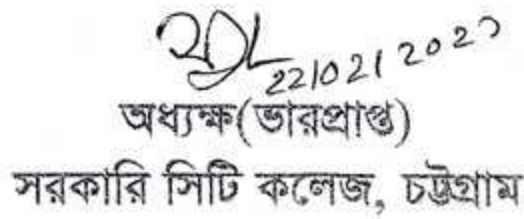 22/02/2023
অধ্যক্ষ(ভারপ্রাপ্ত)
সরকারি সিটি কলেজ, চট্টগ্রাম